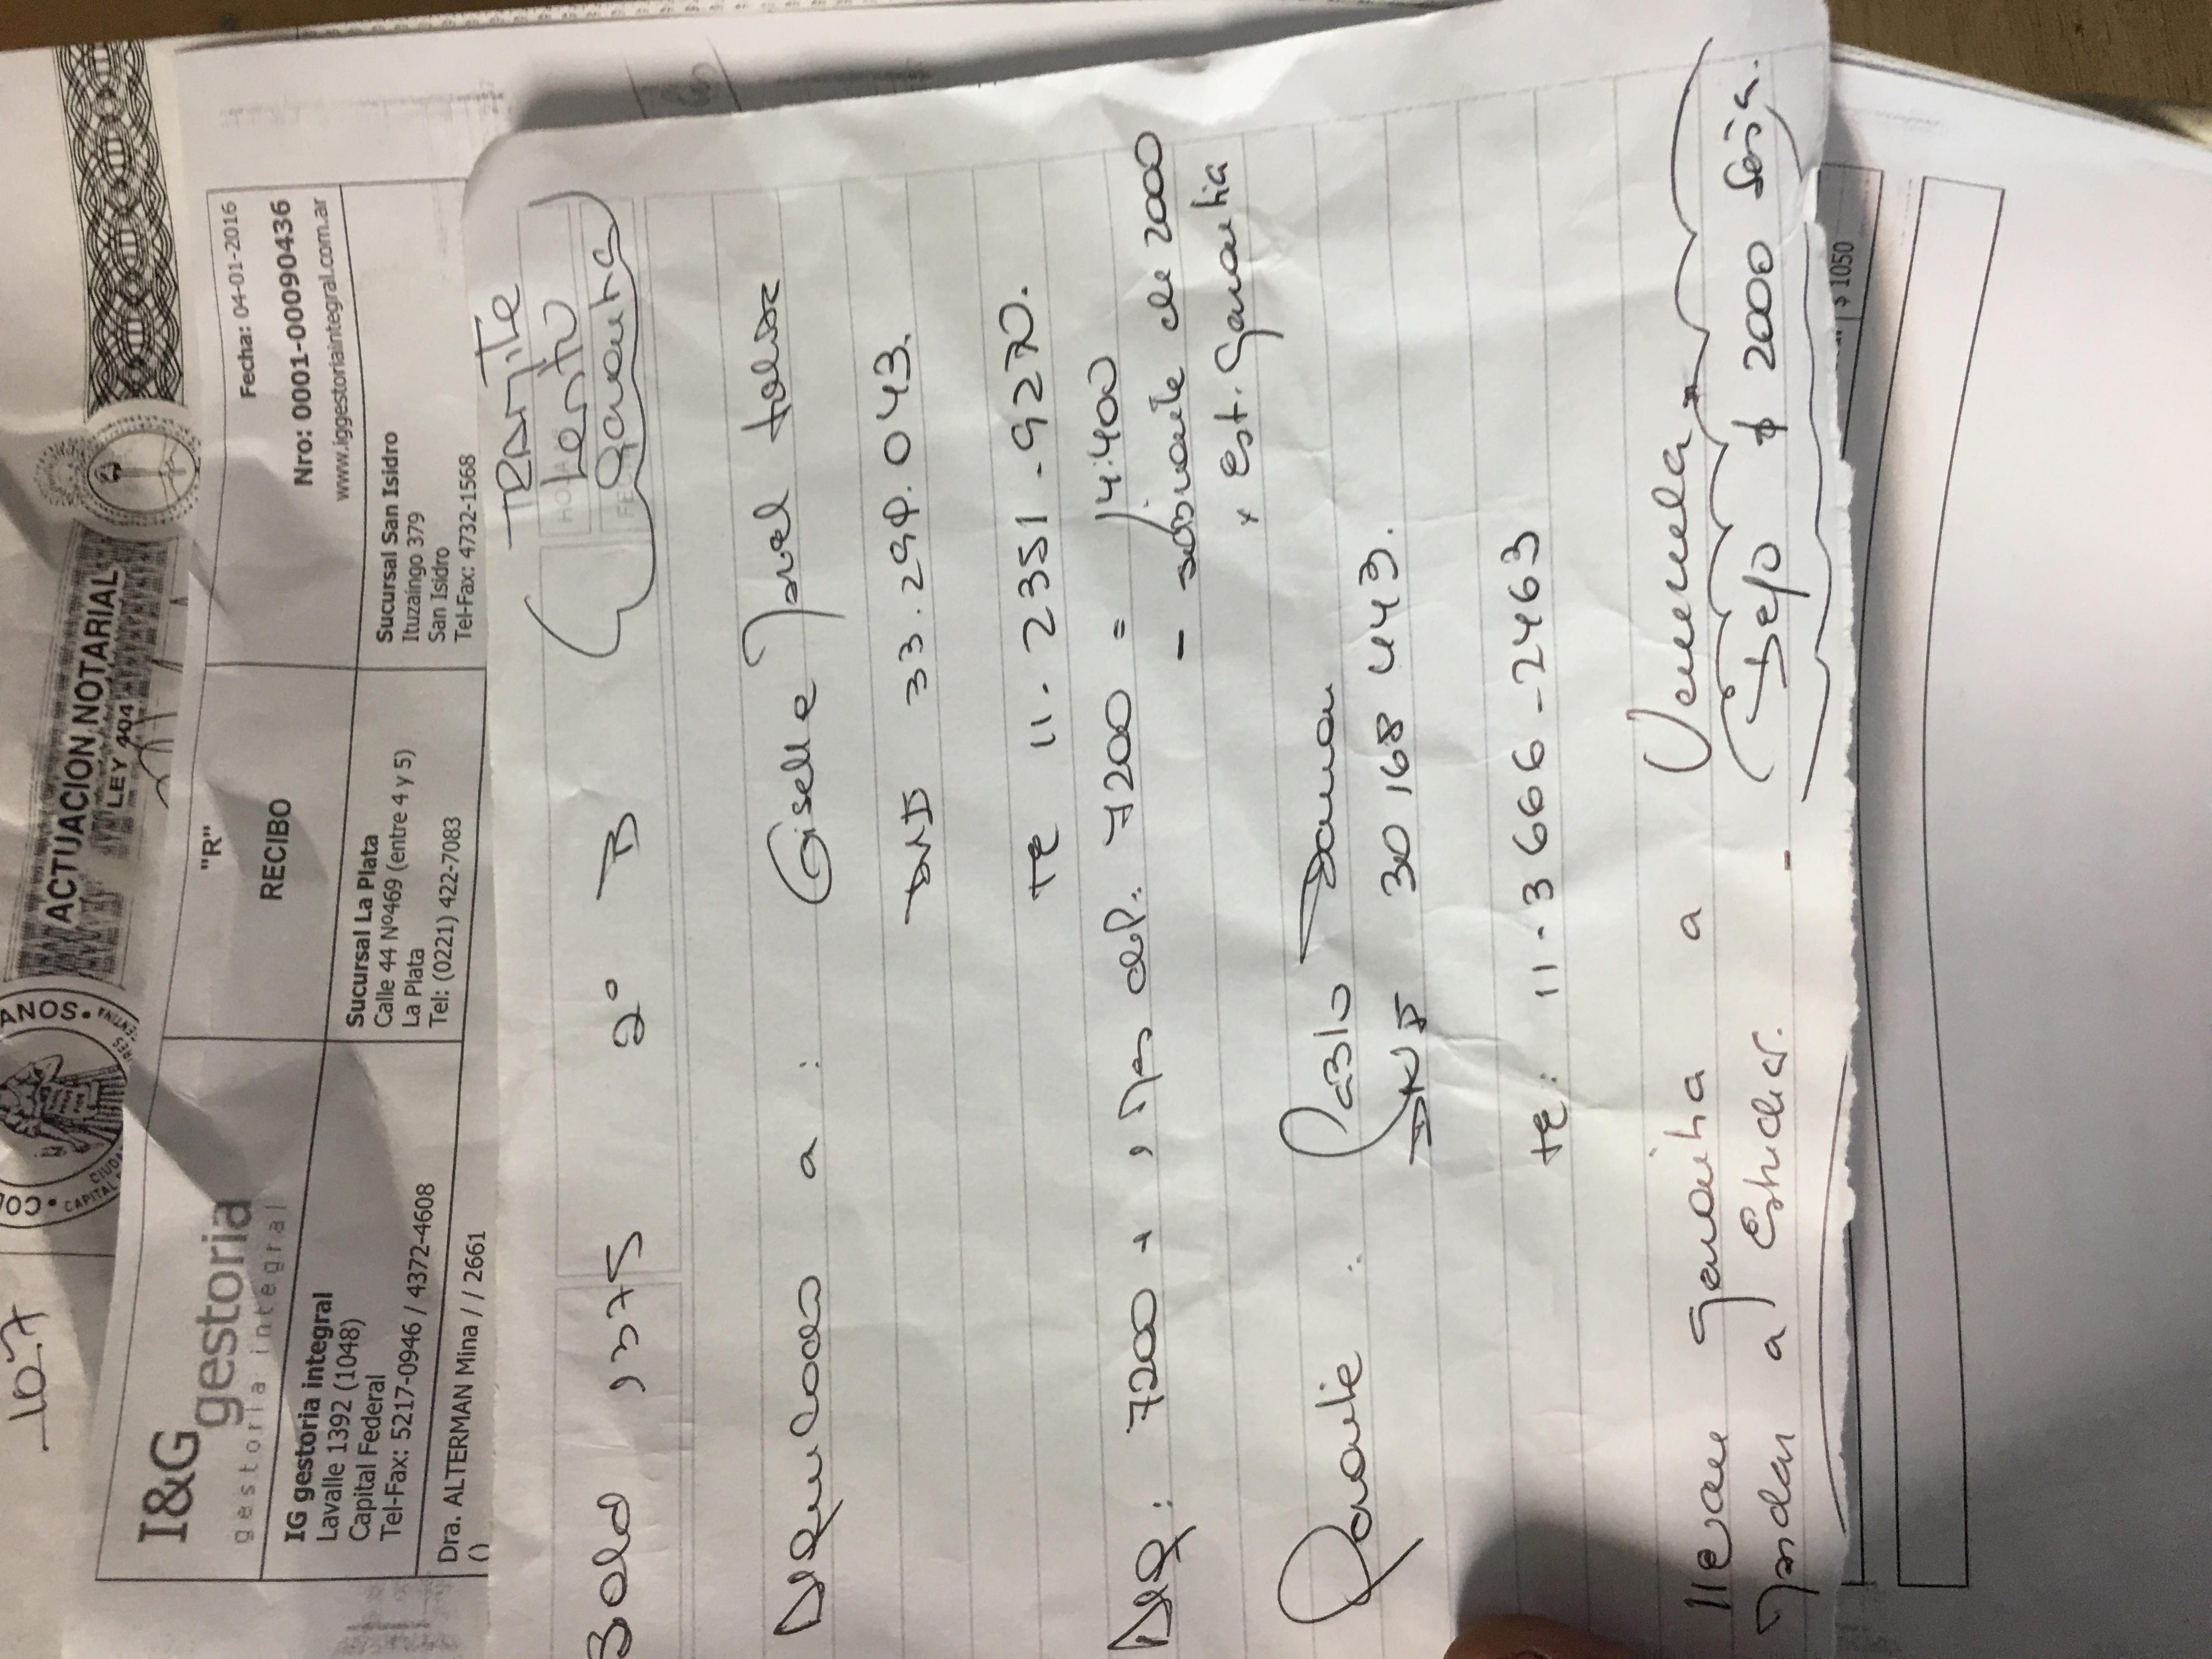 10.7
ANOS.
CAPITAL
ACTUACION NOTARIAL
LEY 404
I&G
gestoria
gestoria integral
"R"
RECIBO
Fecha: 04-01-2016
Nro: 0001-00090436
www.iggestoriaintegral.com.ar
IG gestoria integral
Lavalle 1392 (1048)
Capital Federal
Tel-Fax: 5217-0946 / 4372-4608
Sucursal La Plata
Calle 44 Nº469 (entre 4 y 5)
La Plata
Tel: (0221) 422-7083
Sucursal San Isidro
Ituzaingo 379
San Isidro
Tel-Fax: 4732-1568
Dra. ALTERMAN Mina / / 2661
()
TRAMITE
Lento
Garantia
1375 2º B
a: Giselle
DNI 33.298.043.
te 11.2351-9270.
7200 + 1 mes dep. 7200 = 14.400
- de 2000
x Est. Garantia
Garante: Pablo
DNI 30 168 443.
te: 11.3666-2463
llevan garantia a
a Estudiar.
Dejo $ 2000 Seña.
$ 1050